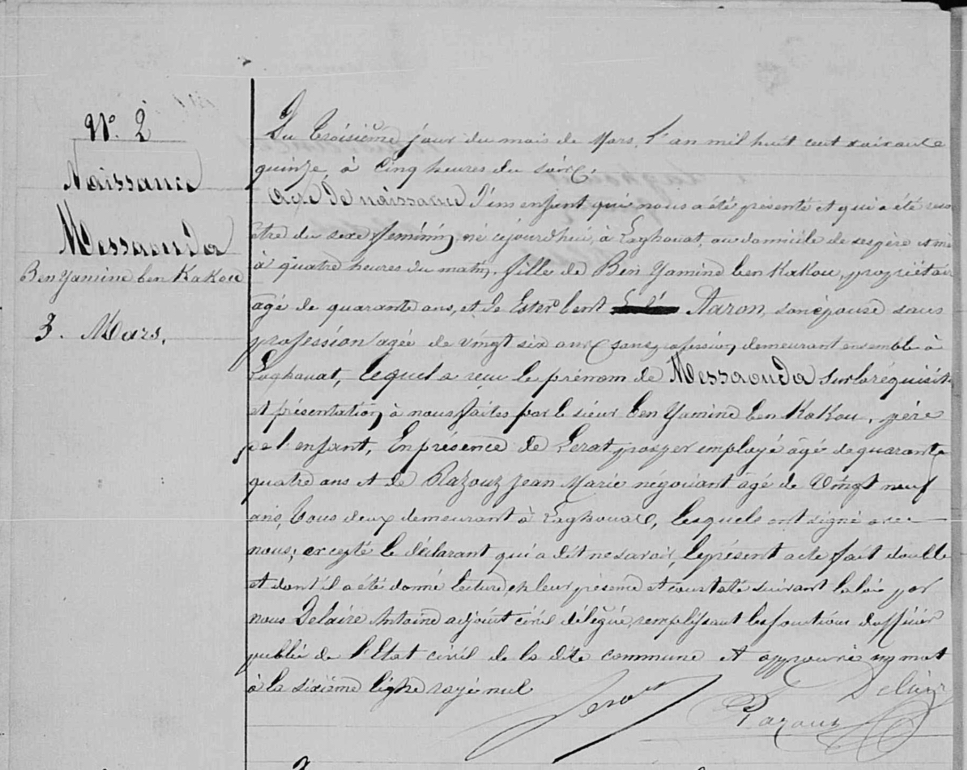 N.º 2
Naissance
Messaouda
Ben Yamine ben Kakou
3. Mars.
Du troisième jour du mois de Mars, l'an mil huit cent soixante
quinze, à cinq heures du soir,
Acte de naissance d'un enfant qui nous a été présenté et qui a été reconnu
être du sexe féminin, né cejourdhui, à Laghouat, au domicile de ses père et mère
à quatre heures du matin, fille de Ben Yamine ben Kakou, propriétaire
agé de quarante ans, et de Ester bent Aaron, son épouse sans
profession agée de vingt six ans sans profession, demeurant ensemble à
Laghouat, lequel a reçu le prénom de Messaouda sur la réquisition
et présentation à nous faites par le sieur Ben Yamine ben Kakou, père
de l'enfant, En présence de Lerat prosper employé âgé de quarante
quatre ans et de Razouz Jean Marie négociant agé de vingt neuf
ans, tous deux demeurant à Laghouat, lesquels ont signé avec
nous, excepté le déclarant qui a dit ne savoir, le présent acte fait double
et dont il a été donné lecture en leur présence et constaté suivant la loi par
nous Delaire Antoine adjoint civil délégué, remplissant les fonctions d'officier
public de l'Etat civil de la dite commune et approuvé un mot
à la sixième ligne rayé nul
Lerat Delaire
Razouz